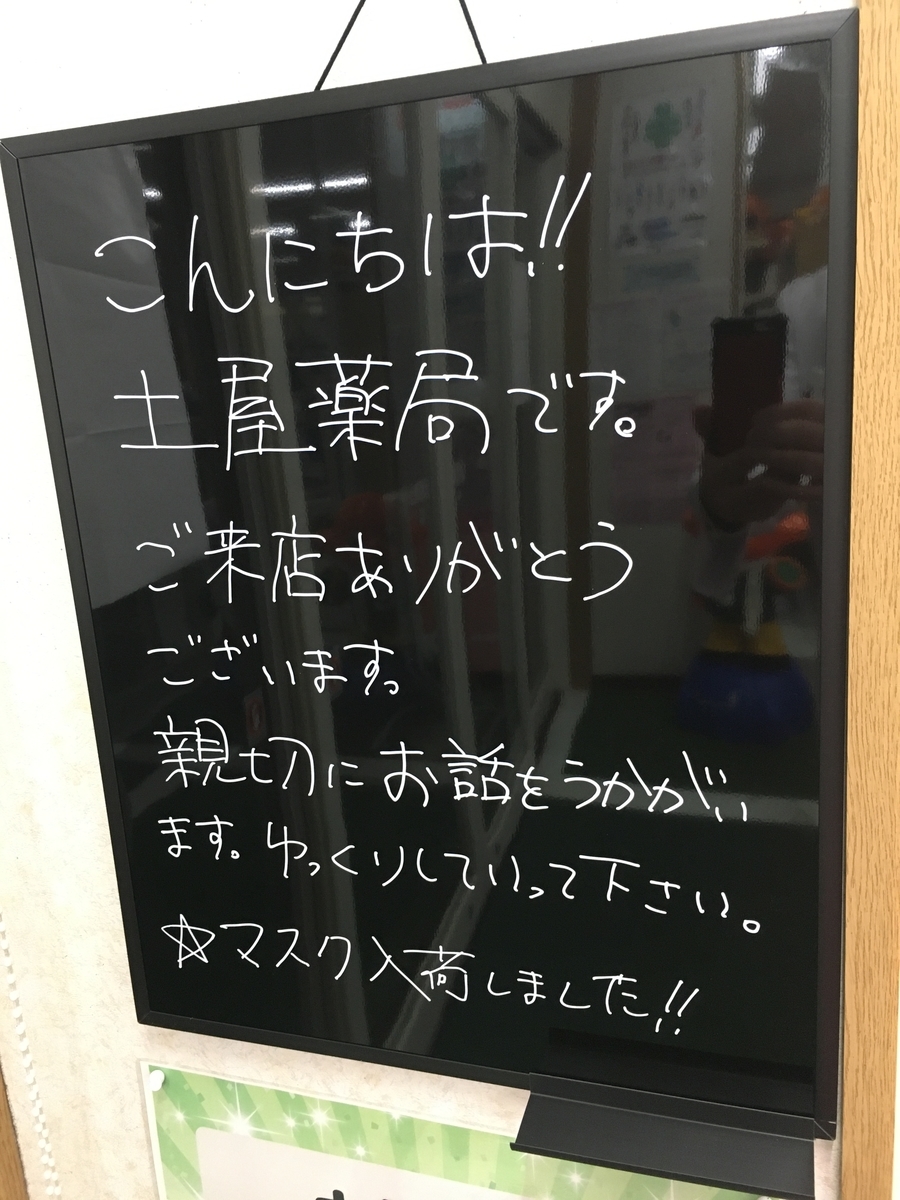 こんにちは!!
土屋薬局です。
ご来店ありがとう
ございます。
親切にお話をうかがい
ます。ゆっくりしていって下さい。
☆マスク入荷しました!!